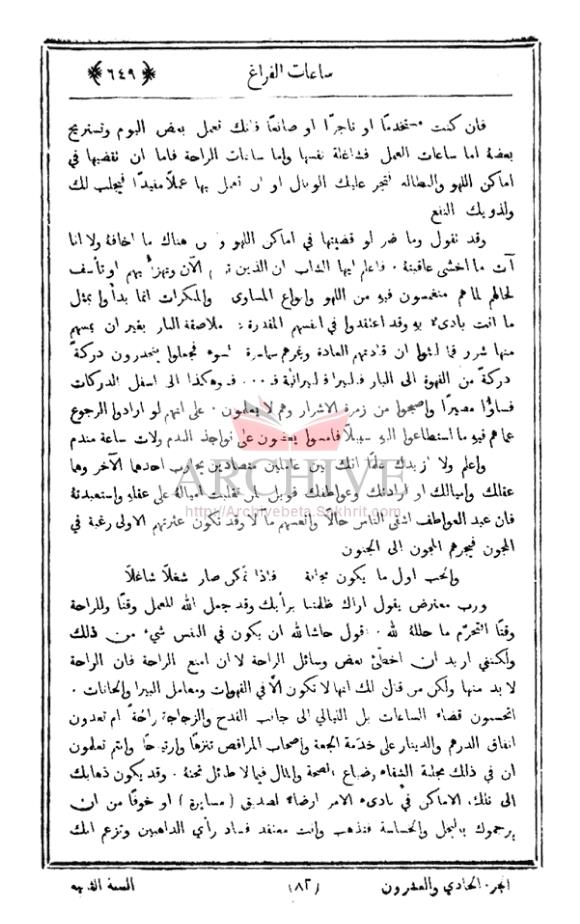 ساعات الفراغ
﴿ ٦٤٩ ﴾
فان كنت مستخدمًا او تاجرًا او صانعًا فانك تعمل بعض اليوم وتستريح
بعضهُ اما ساعات العمل فشاغلة نفسها واما ساعات الراحة فاما ان تقضيها في
اماكن اللهو والبطاله فتجر عليك الوبال او ان تعمل بها عملًا مفيدًا فيجلب لك
ولذويك النفع
وقد تقول وما ضر لو قضيتها في اماكن اللهو وليس هناك ما اخافهُ ولا انا
آت ما اخشى عاقبتهُ ٠ فاعلم ايها الشاب ان الذين الآن وتهزأ بهم او تأسف
لحالهم لما هم منغمسون فيه من اللهو وانواع المساوى والمنكرات انما بدأوا بمثل
ما انت بادىء به وقد اعتقدوا في انفسهم المقدرة ملاصقة النار بغير ان يمسهم
منها شرر فما لبثوا ان قادتهم العادة وغرهم فجعلوا ينحدرون دركةً
دركةً من القهوة الى البار وهكذا الى اسفل الدركات
فساؤا مصيرًا واصبحوا من زمرة الاشرار وهم لا يعلمون ٠ على انهم لو ارادوا الرجوع
عما هم فيه ما استطاعوا اليه سبيلًا فامسوا يعضون على نواجذ الندم ولات ساعة مندم
واعلم ولا ازيدك علمًا انك بين عاملين متضادين يحارب احدهما الآخر وهما
عقلك واميالك او ارادتك وعواطفك فويل لمن تغلبت اميالهُ على عقله واستعبدتهُ
فان عبد العواطف اشقى الناس حالًا واتعسهم مآلا وقد تكون عثرتهم الاولى رغبة في
المجون فيجرهم المجون الى الجنون
والحب اول ما يكون مجانة فاذا تمكن صار شغلًا شاغلًا
ورب معترض يقول اراك ظلمتنا برأيك وقد جعل الله للعمل وقتًا وللراحة
وقتًا أتحرّم ما حلله الله ٠ اقول حاشا لله ان يكون في النفس شيء من ذلك
ولكنني اريد ان اخطّئ بعض وسائل الراحة لا ان امنع الراحة فان الراحة
لا بد منها ولكن من قال لك انها لا تكون الّا في القهوات ومعامل البيرا والحانات ٠
اتحسبون قضاء الساعات بل الليالي الى جانب القدح والزجاجة راحةً ام تعدون
انفاق الدرهم والدينار على خدمة الجعة واصحاب المراقص تنزهًا وارتياحًا وانتم تعلمون
ان في ذلك مجلبة الشقاء وضياع الصحة والمال فيما لا طائل تحتهُ ٠ وقد يكون ذهابك
الى تلك الاماكن في بادىء الامر ارضاءً لصديق ( مسايرة ) او خوفًا من ان
يرجموك بالبخل والخساسة فتذهب وانت معتقد فساد رأي الذاهبين وتزعم انك
الجزء الحادي والعشرون
(٨٢)
السنة
ARCHIVE
http://Archivebeta.Sakhrit.com